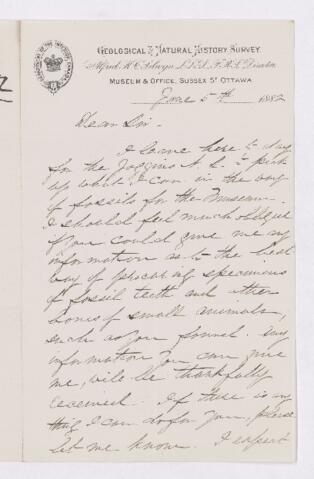 GEOLOGICAL & NATURAL HISTORY SURVEY.
Alfred R. C. Selwyn L.L.D. F.R.S. Director
MUSEUM & OFFICE, SUSSEX ST OTTAWA
June 5th 1882
Dear Sir.
I leave here to day
for the Joggins N. S. to pick
up what I can in the way
of fossils for the Museum.
I should feel much oblige
if you could give me any
information as to the best
way of procuring specimens
of fossil teeth and other
bones of small animals,
such as you found. Any
information you can give
me, will be thankfully
received. If there is any
thing I can do for you, please
let me know. I expect